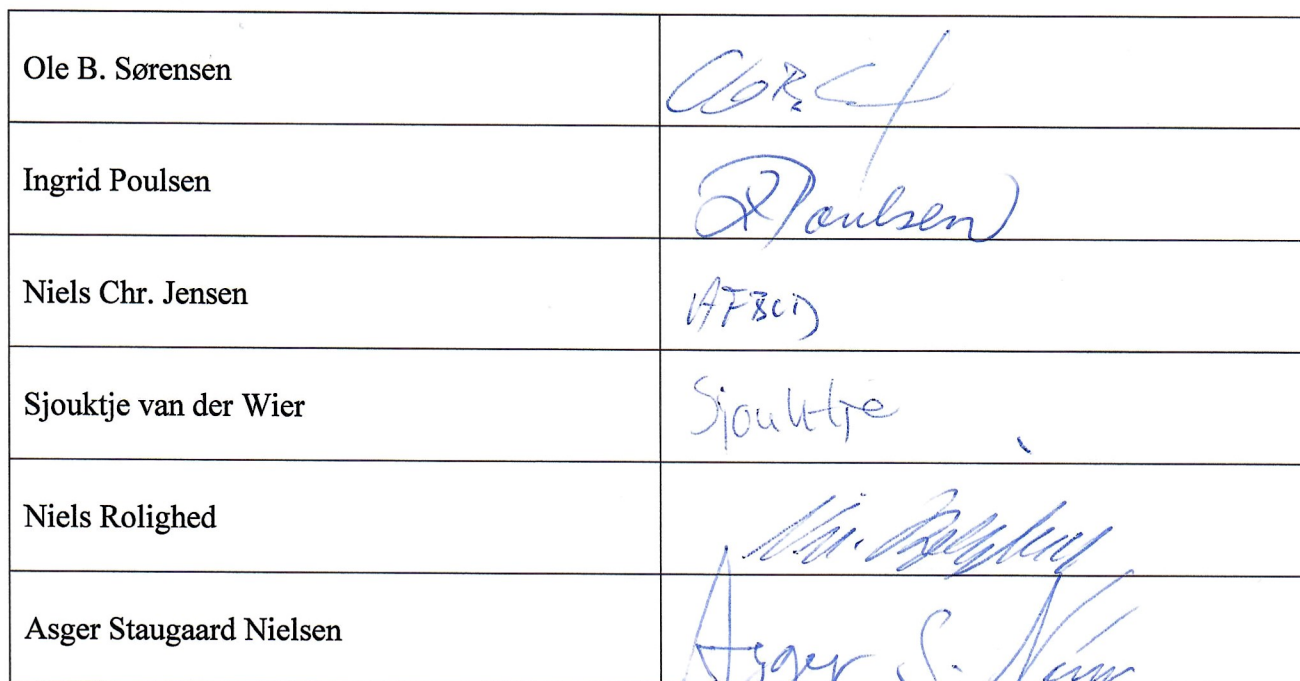 Ole B. Sørensen
Ingrid Poulsen
Poulsen
Niels Chr. Jensen
AFBUD
Sjouktje van der Wier
Sjouktje
Niels Rolighed
Asger Staugaard Nielsen
Asger S.